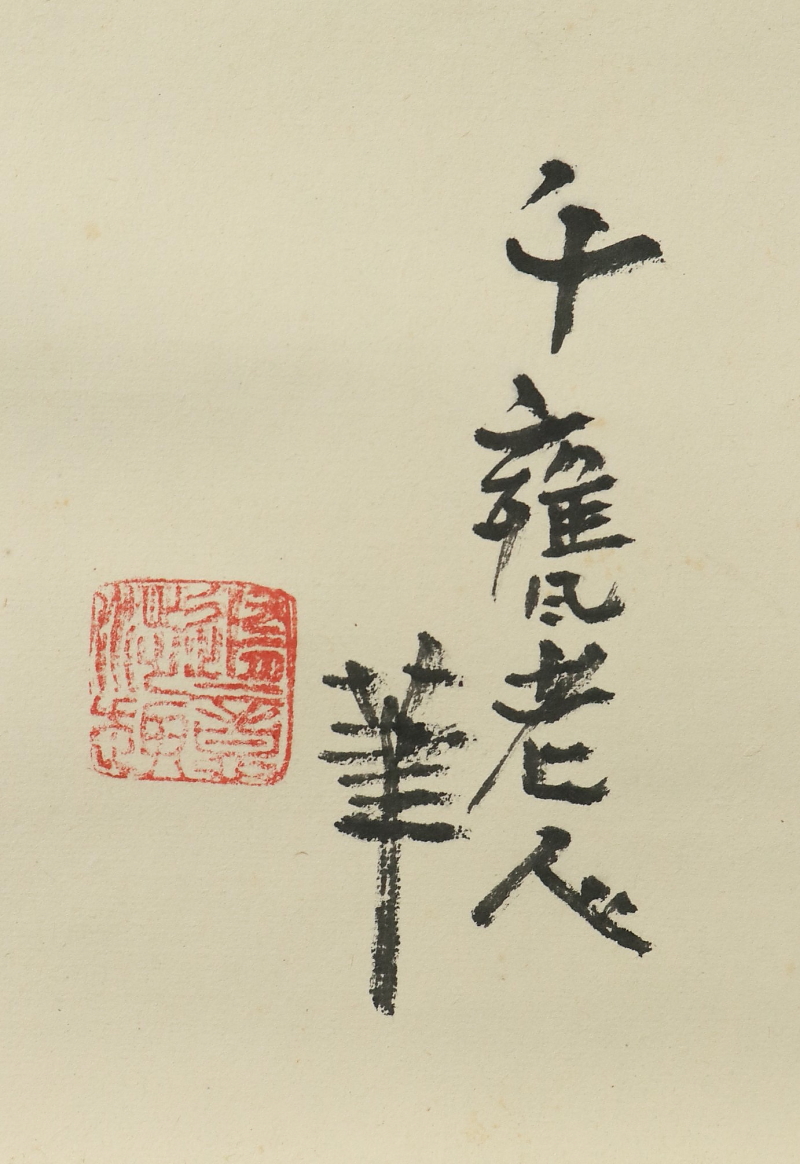 千甕老人
筆